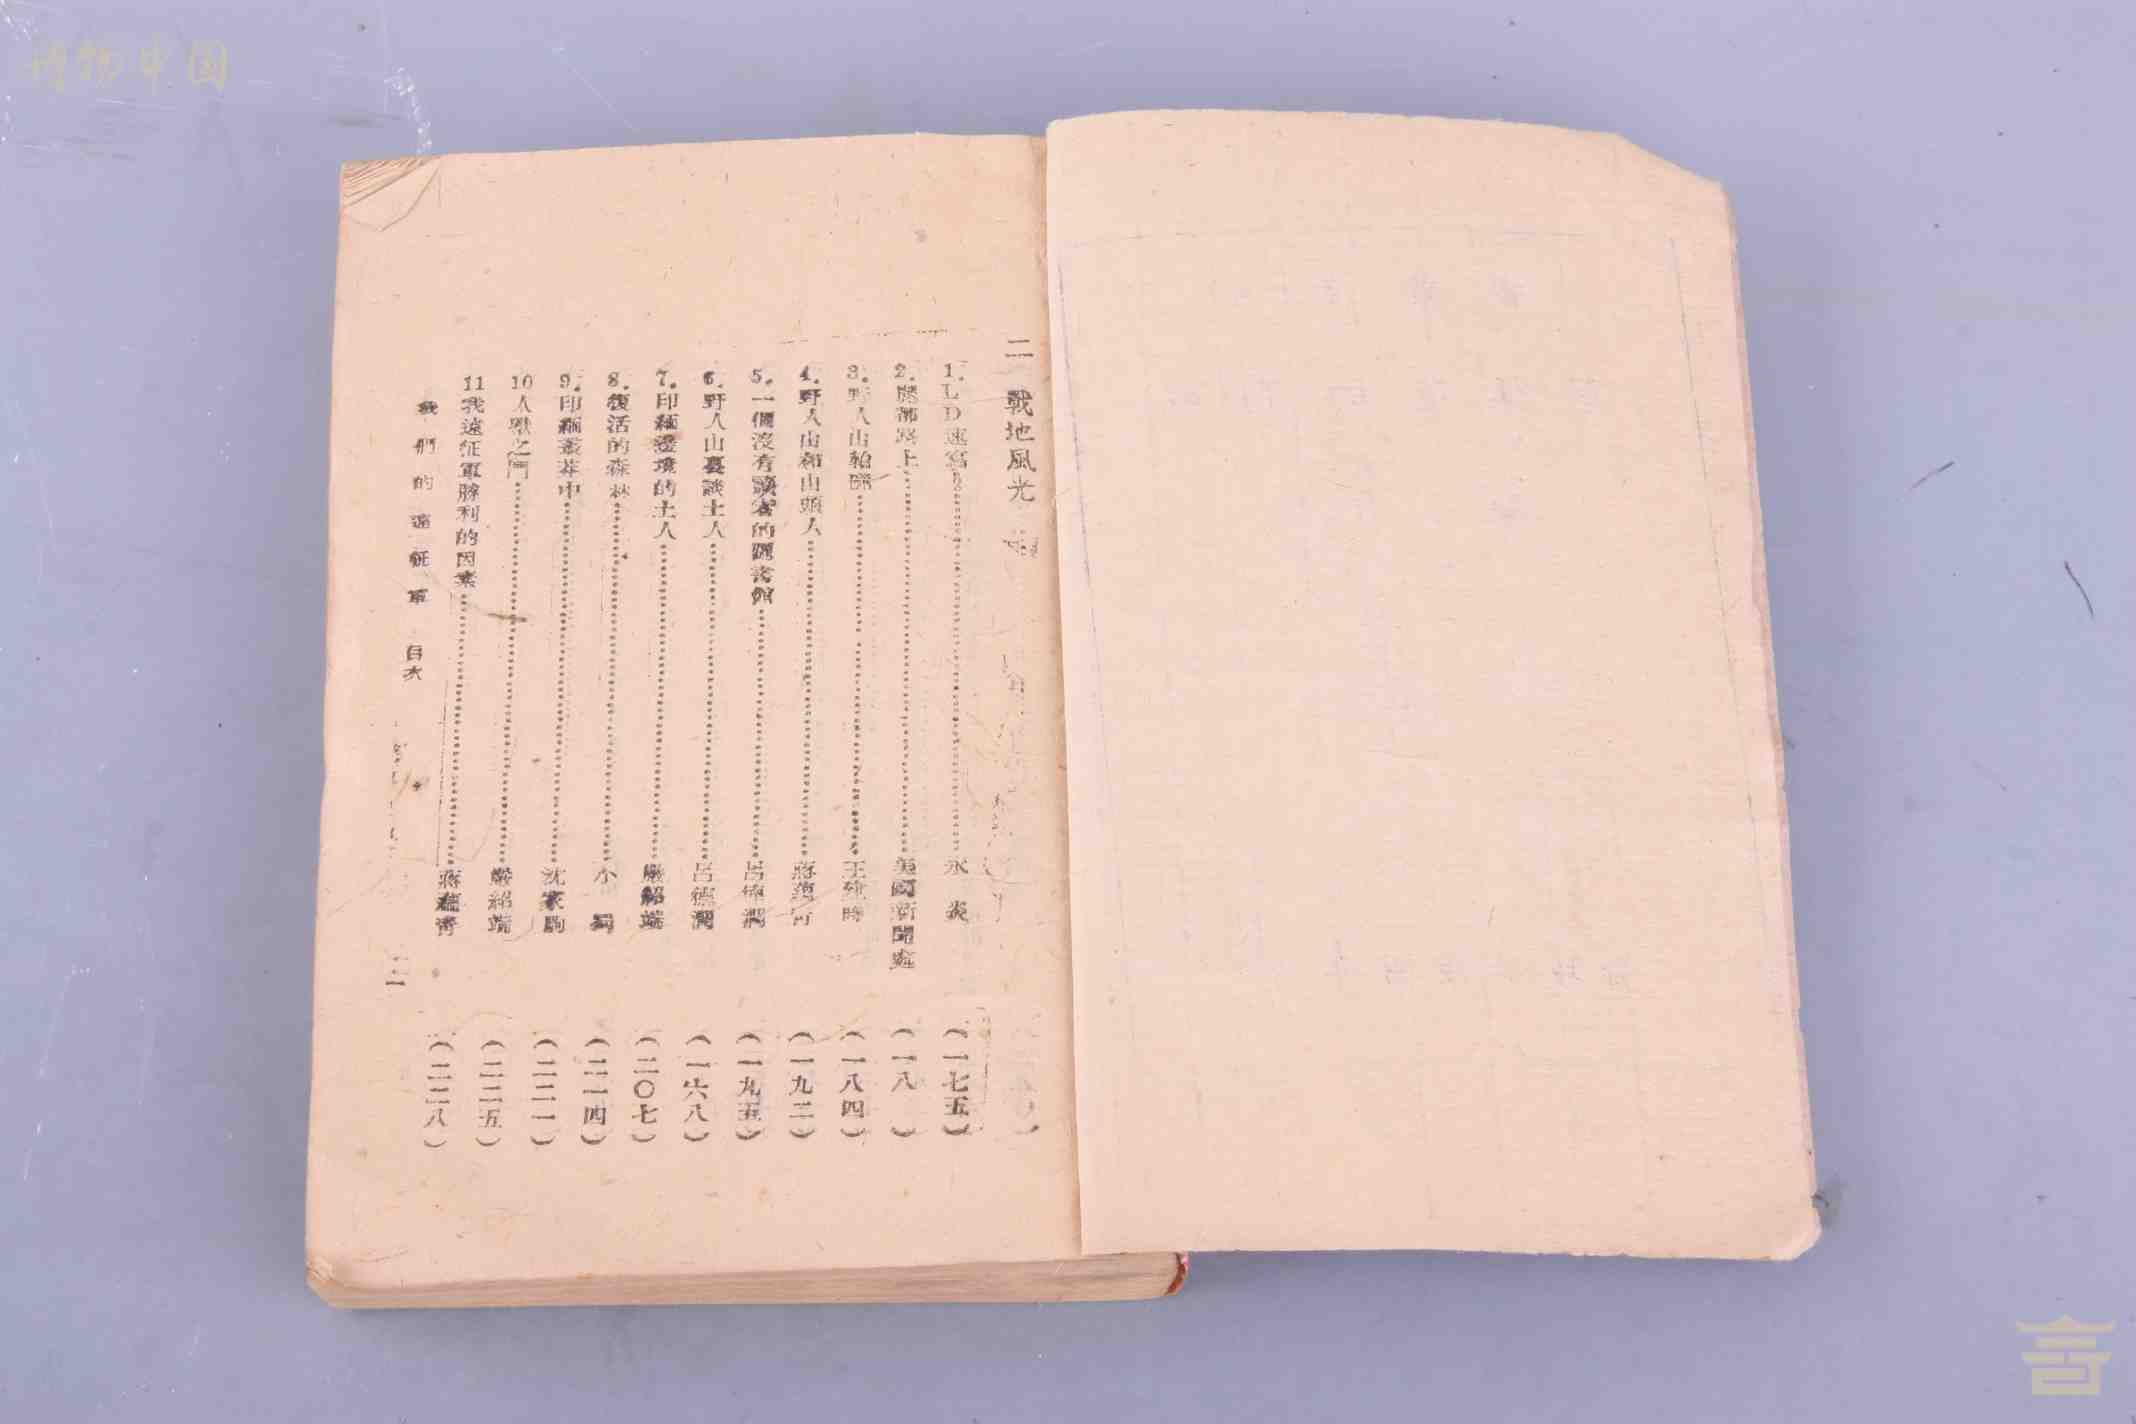 博物中国
二 戰地風光
1. LD速寫……永炎(一七五)
2. 路上……美國新聞處(一八 )
3. 野人山……王 時(一八四)
4. 野人山和山頭人……蔣 (一九二)
5. 一個沒有讀者的圖書館……呂德潤(一九五)
6. 野人山裏談土人……呂德潤(一六八)
7. 印緬邊境的土人……嚴紹端(二〇七)
8. 復活的森林……小 (二一四)
9. 印緬叢莽中……沈家駒(二二一)
10 人獸之鬥……嚴紹端(二二五)
11 我遠征軍勝利的因素……蔣 (二二八)
我們的遠征軍 目次